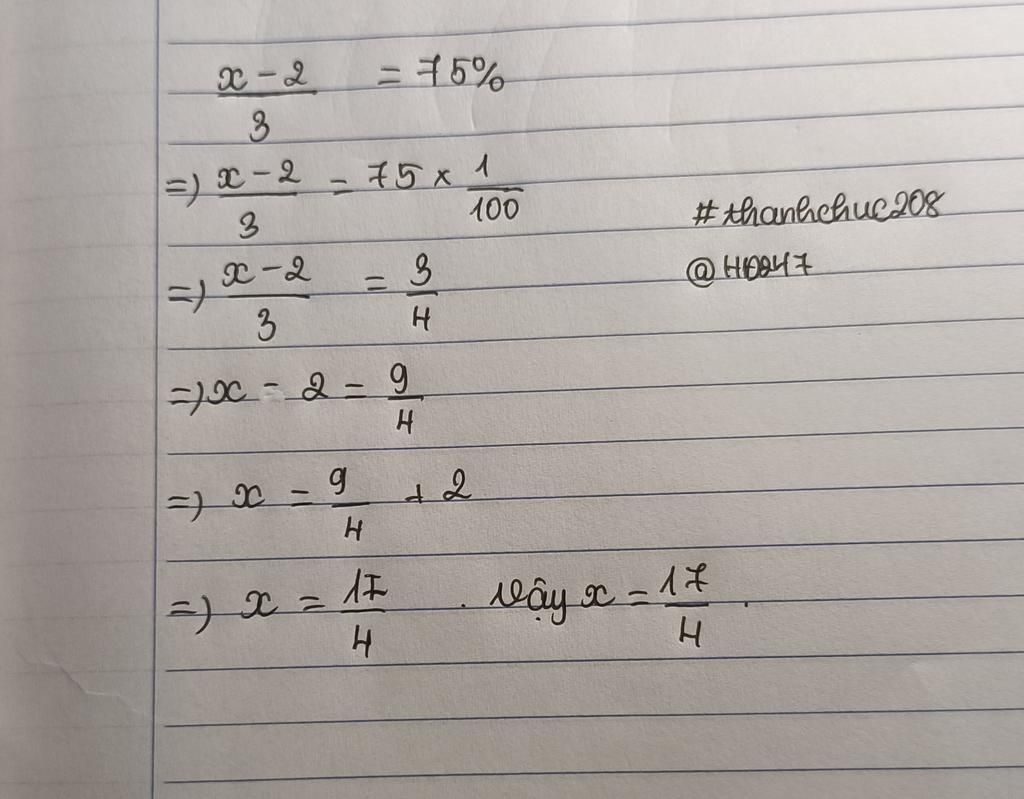 x - 2 / 3 = 75%
=) x - 2 / 3 = 75 × 1/100
#thanhchuc208
=) x - 2 / 3 = 3/4
=) x - 2 = 9/4
=) x = 9/4 + 2
=) x = 17/4 . Vậy x = 17/4 .